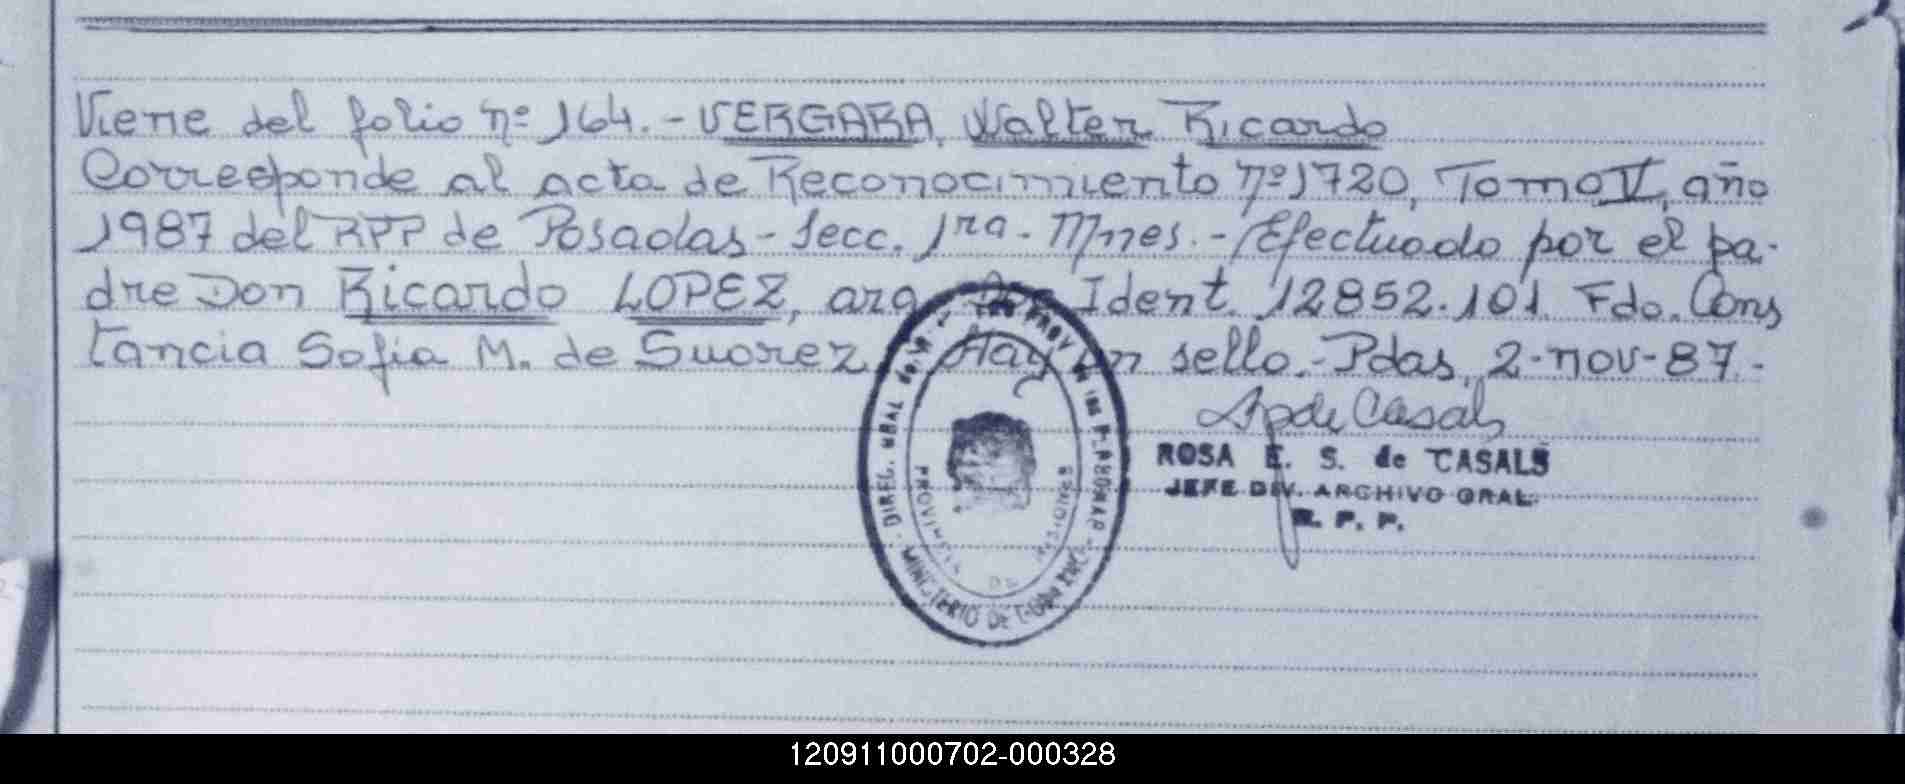 Viene del folio nº 164.- VERGARA, Walter Ricardo
Corresponde al acta de Reconocimiento nº 1720, Tomo V, año
1987 del RPP de Posadas - Secc. 1ra. Mnes. - Efectuado por el pa-
dre Don Ricardo LOPEZ, arg. Doc Ident. 12852.101. Fdo. Cons
tancia Sofia M. de Suarez. Hay un sello. - Pdas, 2-nov-87.-
de Casals
ROSA E. S. de CASALS
JEFE DIV. ARCHIVO GRAL.
R. P. P.
DIREC. GRAL. del REG. PROV. de las PERSONAS
PROVINCIA DE MISIONES
MINISTERIO DE GOBIERNO
120911000702-000328